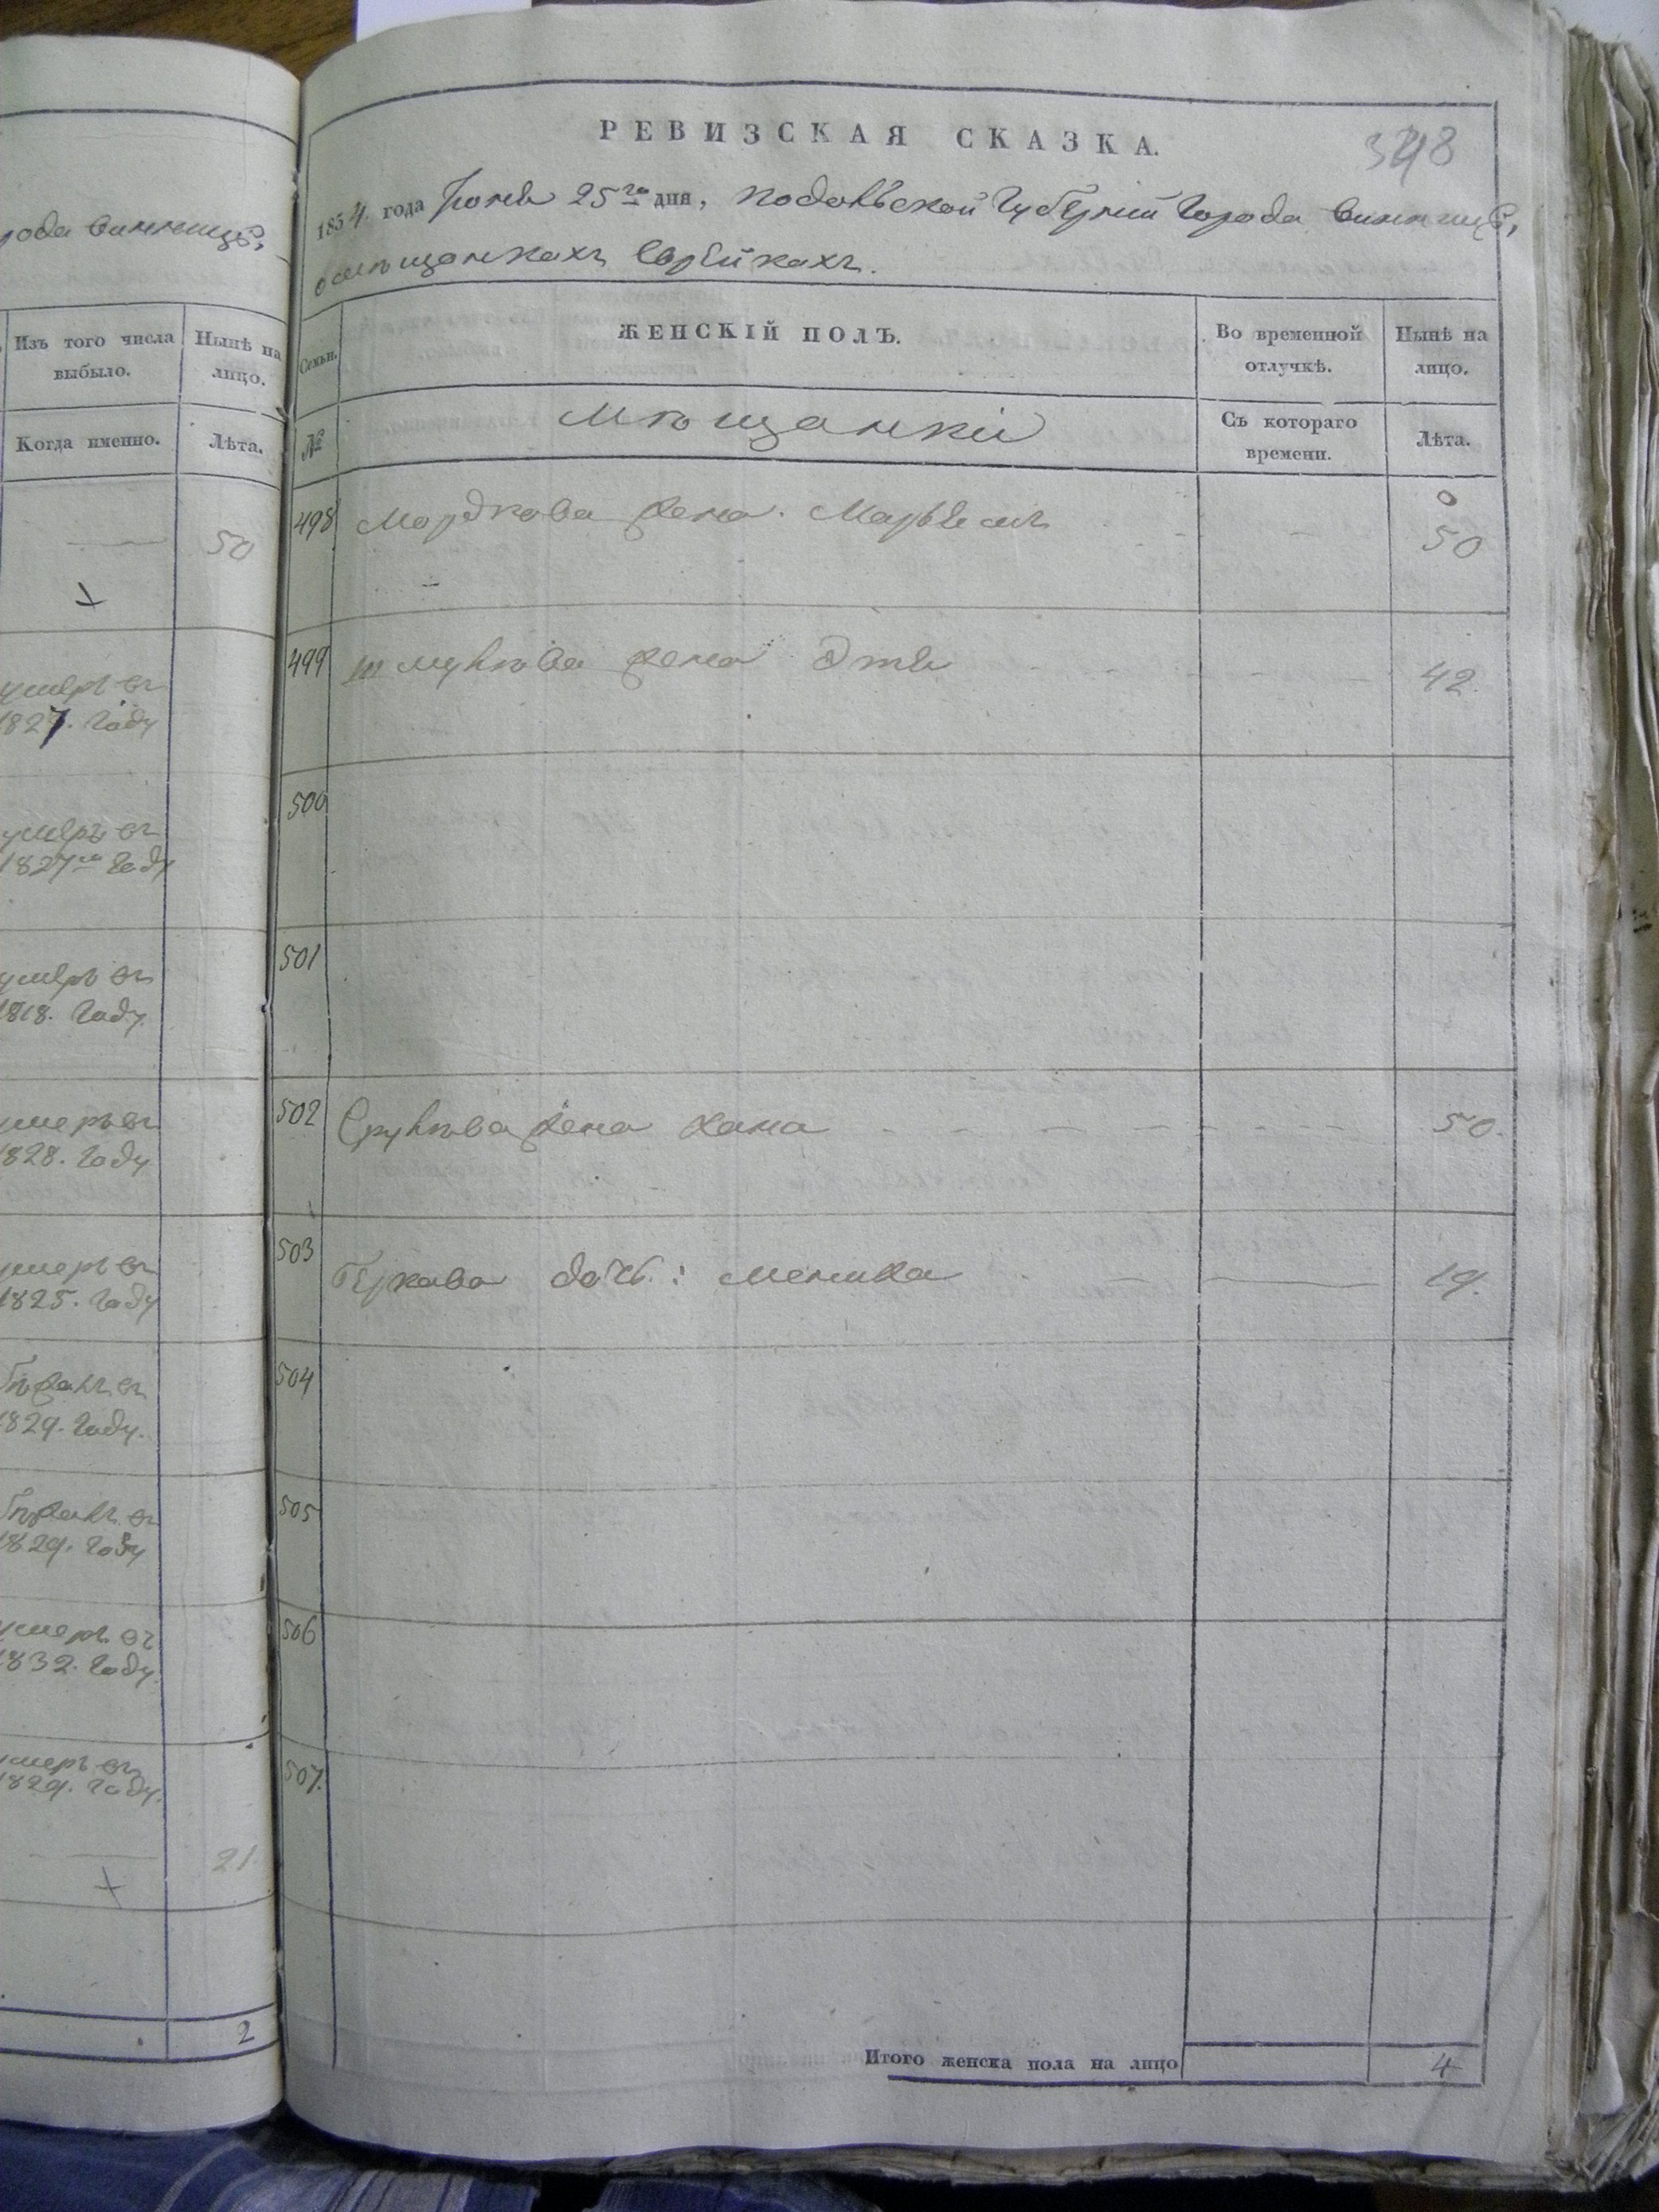 рода Винницѣ,
Изъ того числа выбыло.
Нынѣ на лицо.
Когда именно.
Лѣта.
50
умеръ въ
1827. году
умеръ въ
1827го году
умеръ въ
1818. году.
умеръ въ
1828. году
умеръ въ
1825. году
бѣжалъ въ
1829. году.
бѣжалъ въ
1829. году
умеръ въ
1832. году.
умеръ въ
1829. году.
21
2
РЕВИЗСКАЯ СКАЗКА.
348
1834. года Іюня 25го дня, Подольской Губерніи Города Винницѣ,
о мѣщанкахъ Еврейкахъ.
Семьи.
ЖЕНСКІЙ ПОЛЪ.
Во временной отлучкѣ.
Нынѣ на лицо.
№
Мѣщанки
Съ котораго времени.
Лѣта.
498 Мордкова жена 50
499 Шмулѣва жена Этя 42.
500
501
502 Срулѣва жена Хана 50.
503 Беркова дочь: 19.
504
505
506
507.
Итого женска пола на лицо 4